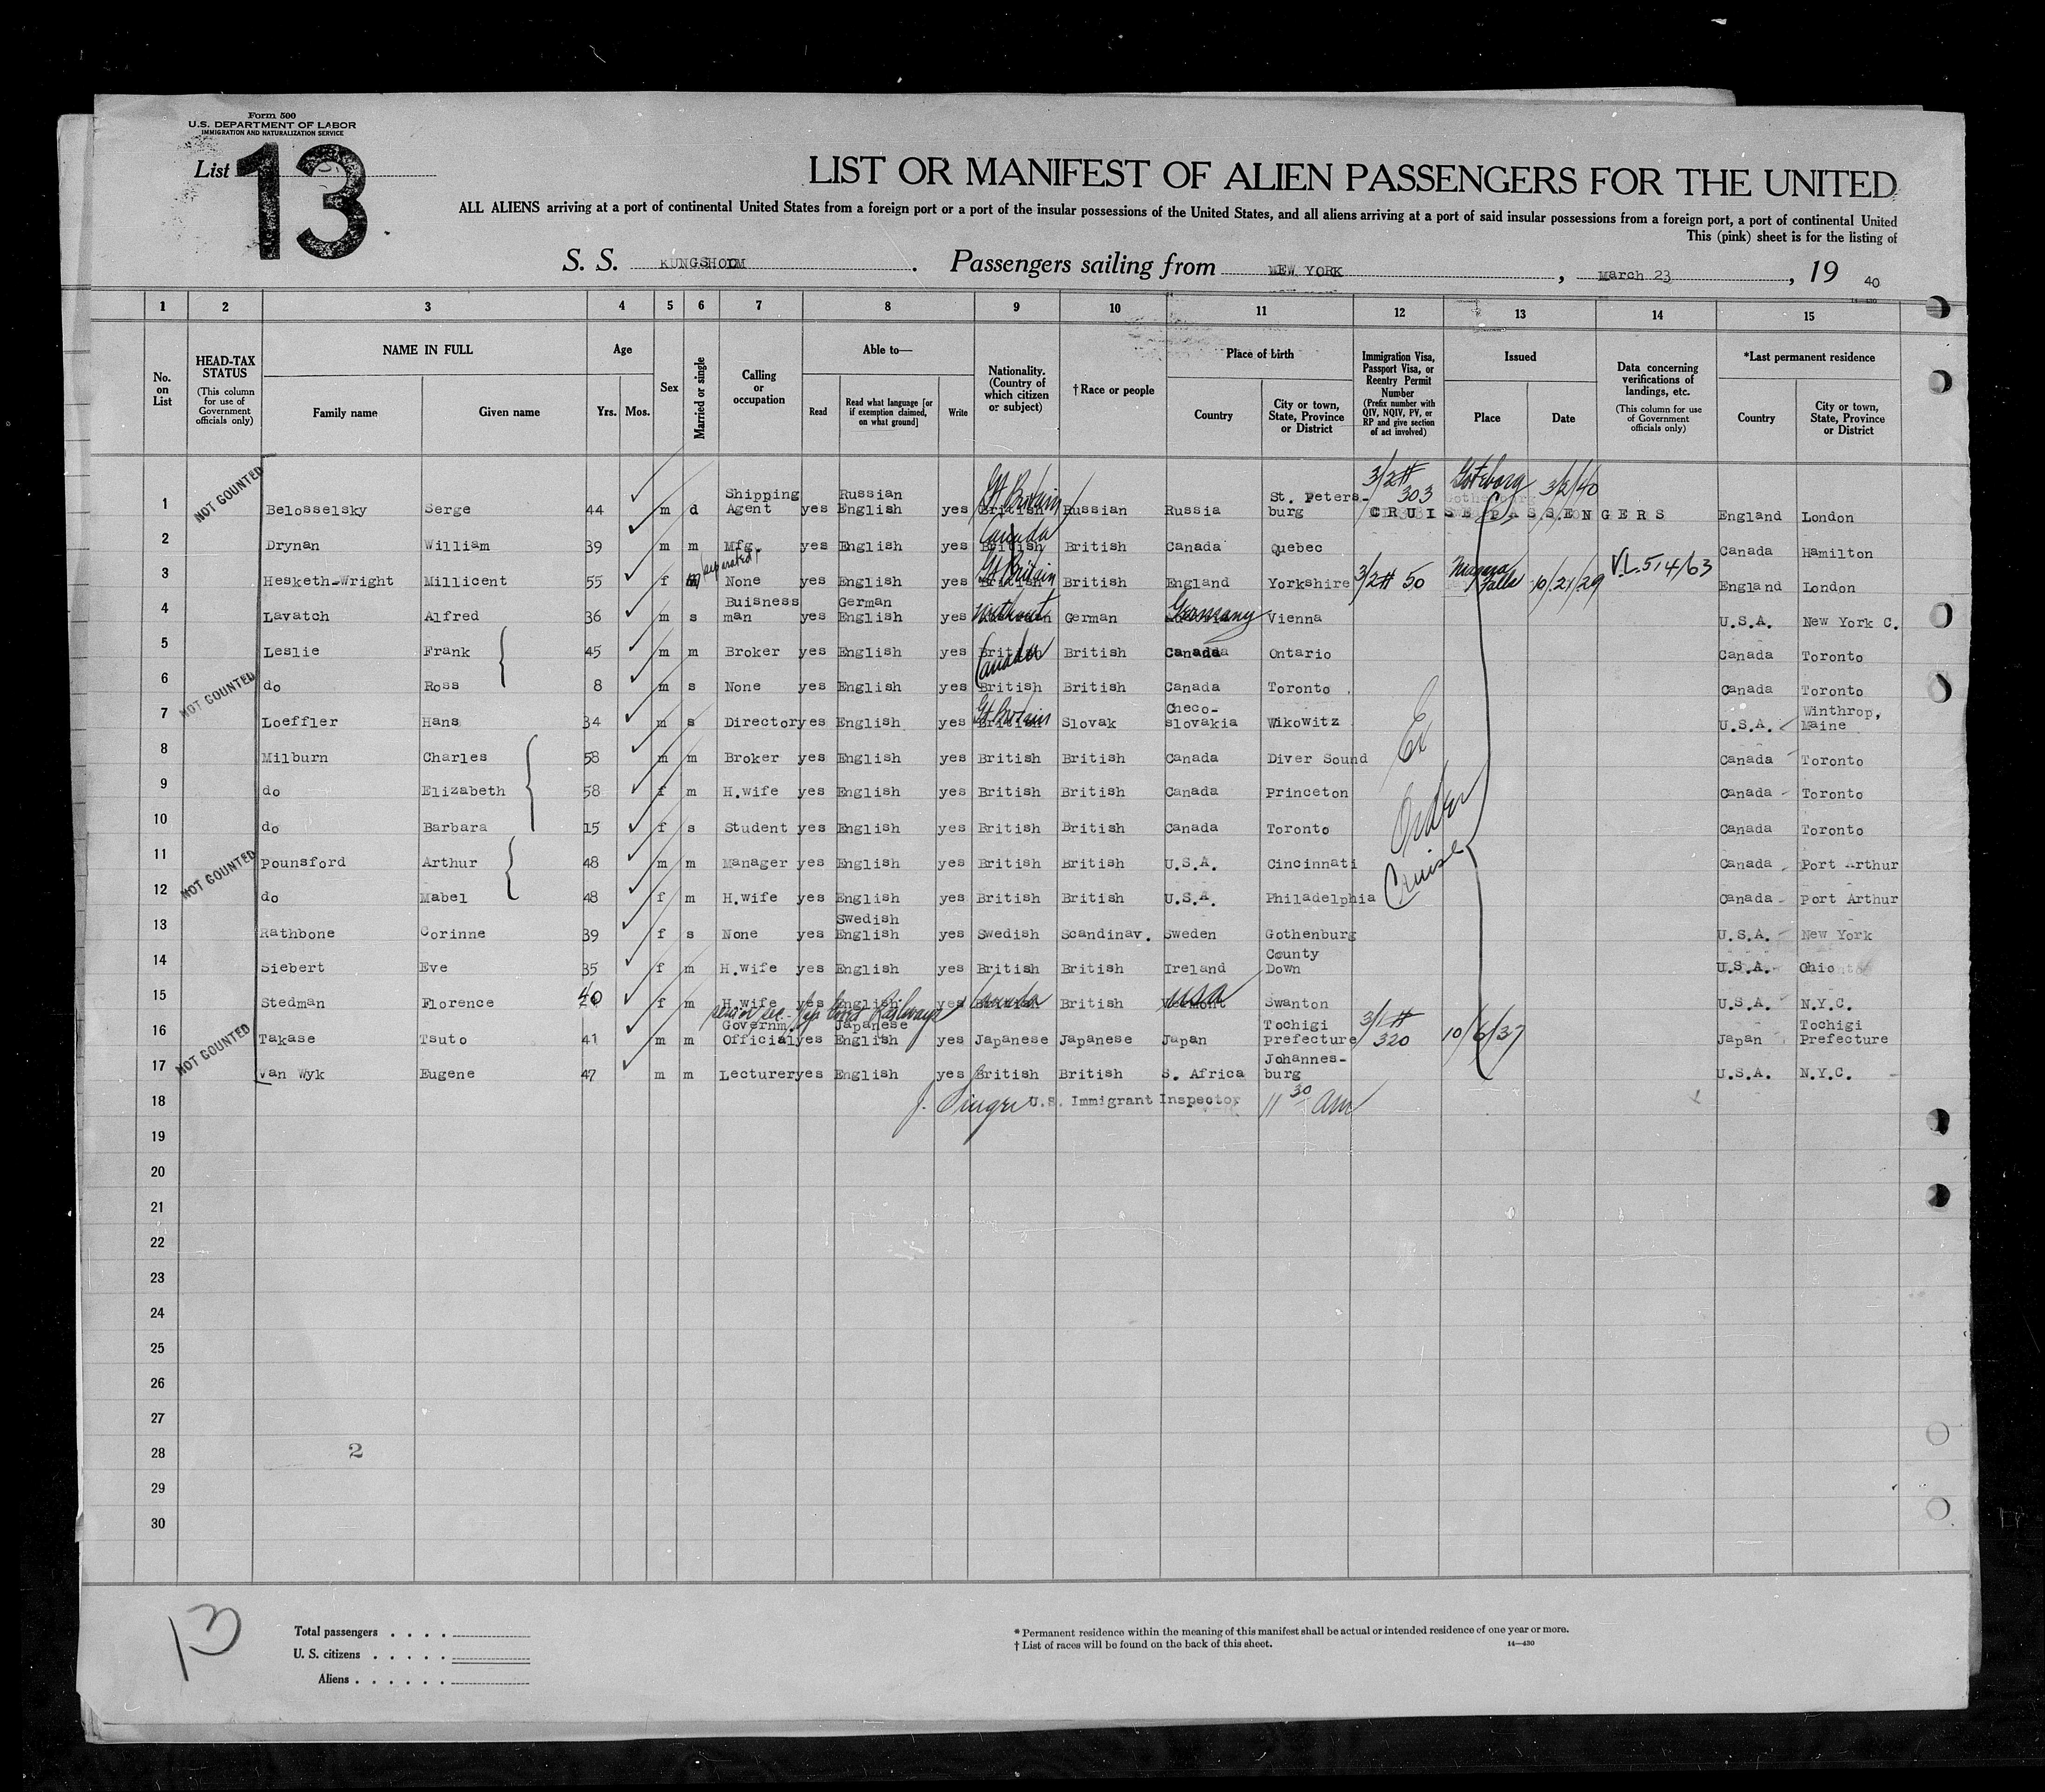 Form 500
U.S. DEPARTMENT OF LABOR
IMMIGRATION AND NATURALIZATION SERVICE
List 13
LIST OR MANIFEST OF ALIEN PASSENGERS FOR THE UNITED
ALL ALIENS arriving at a port of continental United States from a foreign port or a port of the insular possessions of the United States, and all aliens arriving at a port of said insular possessions from a foreign port, a port of continental United
This (pink) sheet is for the listing of
S. S. KUNGSHOLM . Passengers sailing from NEW YORK , March 23 , 19 40
14—430
1 2 3 4 5 6 7 8 9 10 11 12 13 14 15
No. on List
HEAD-TAX STATUS (This column for use of Government officials only)
NAME IN FULL
Family name Given name
Age
Yrs. Mos.
Sex
Married or single
Calling or occupation
Able to—
Read
Read what language [or if exemption claimed, on what ground]
Write
Nationality. (Country of which citizen or subject)
† Race or people
Place of birth
Country
City or town, State, Province or District
Immigration Visa, Passport Visa, or Reentry Permit Number (Prefix number with QIV, NQIV, PV, or RP and give section of act involved)
Issued
Place Date
Data concerning verifications of landings, etc. (This column for use of Government officials only)
*Last permanent residence
Country
City or town, State, Province or District
NOT COUNTED
1 Belosselsky Serge 44 m d Shipping Agent yes Russian English yes British Gt Britain Russian Russia St. Peters-burg 3/2 # 303 Goteborg 3/2/40 England London
CRUISE PASSENGERS
2 Drynan William 39 m m Mfg. yes English yes British Canada British Canada Quebec Canada Hamilton
3 Hesketh-Wright Millicent 55 f m separated None yes English yes British Gt Britain British England Yorkshire 3/2 # 50 Niagara Falls 10/21/29 V.L. 514/63 England London
4 Lavatch Alfred 36 m s Buisness man yes German English yes without German Germany Vienna U.S.A. New York C.
5 Leslie Frank 45 m m Broker yes English yes British British Canada Ontario Canada Toronto
NOT COUNTED
6 do Ross 8 m s None yes English yes British Canada British Canada Toronto Canada Toronto
7 Loeffler Hans 34 m s Director yes English yes British Gt Britain Slovak Checo-slovakia Wikowitz U.S.A. Winthrop, Maine
8 Milburn Charles 58 m m Broker yes English yes British British Canada Diver Sound Canada Toronto
9 do Elizabeth 58 f m H.wife yes English yes British British Canada Princeton Canada Toronto
10 do Barbara 15 f s Student yes English yes British British Canada Toronto Canada Toronto
Ex Order Cruise
NOT COUNTED
11 Pounsford Arthur 48 m m Manager yes English yes British British U.S.A. Cincinnati Canada Port Arthur
12 do Mabel 48 f m H.wife yes English yes British British U.S.A. Philadelphia Canada Port Arthur
13 Rathbone Corinne 39 f s None yes Swedish English yes Swedish Scandinav. Sweden Gothenburg U.S.A. New York
14 Siebert Eve 35 f m H.wife yes English yes British British Ireland County Down U.S.A. Ohio
15 Stedman Florence 40 f m H.wife yes English yes British Canada British Vermont USA Swanton U.S.A. N.Y.C.
NOT COUNTED
16 Takase Tsuto 41 m m Governm. Official yes Japanese English yes Japanese Japanese Japan Tochigi prefecture 3/1 # 320 10/6/37 Japan Tochigi Prefecture
senior sec. Jap Govt Railways
17 Van Wyk Eugene 47 m m Lecturer yes English yes British British S. Africa Johannes-burg U.S.A. N.Y.C.
18 J. Singer U.S. Immigrant Inspector 11 30 am
19
20
21
22
23
24
25
26
27
28 2
29
30
13
Total passengers . . . .
U. S. citizens . . . . .
Aliens . . . . . .
* Permanent residence within the meaning of this manifest shall be actual or intended residence of one year or more.
† List of races will be found on the back of this sheet. 14—430